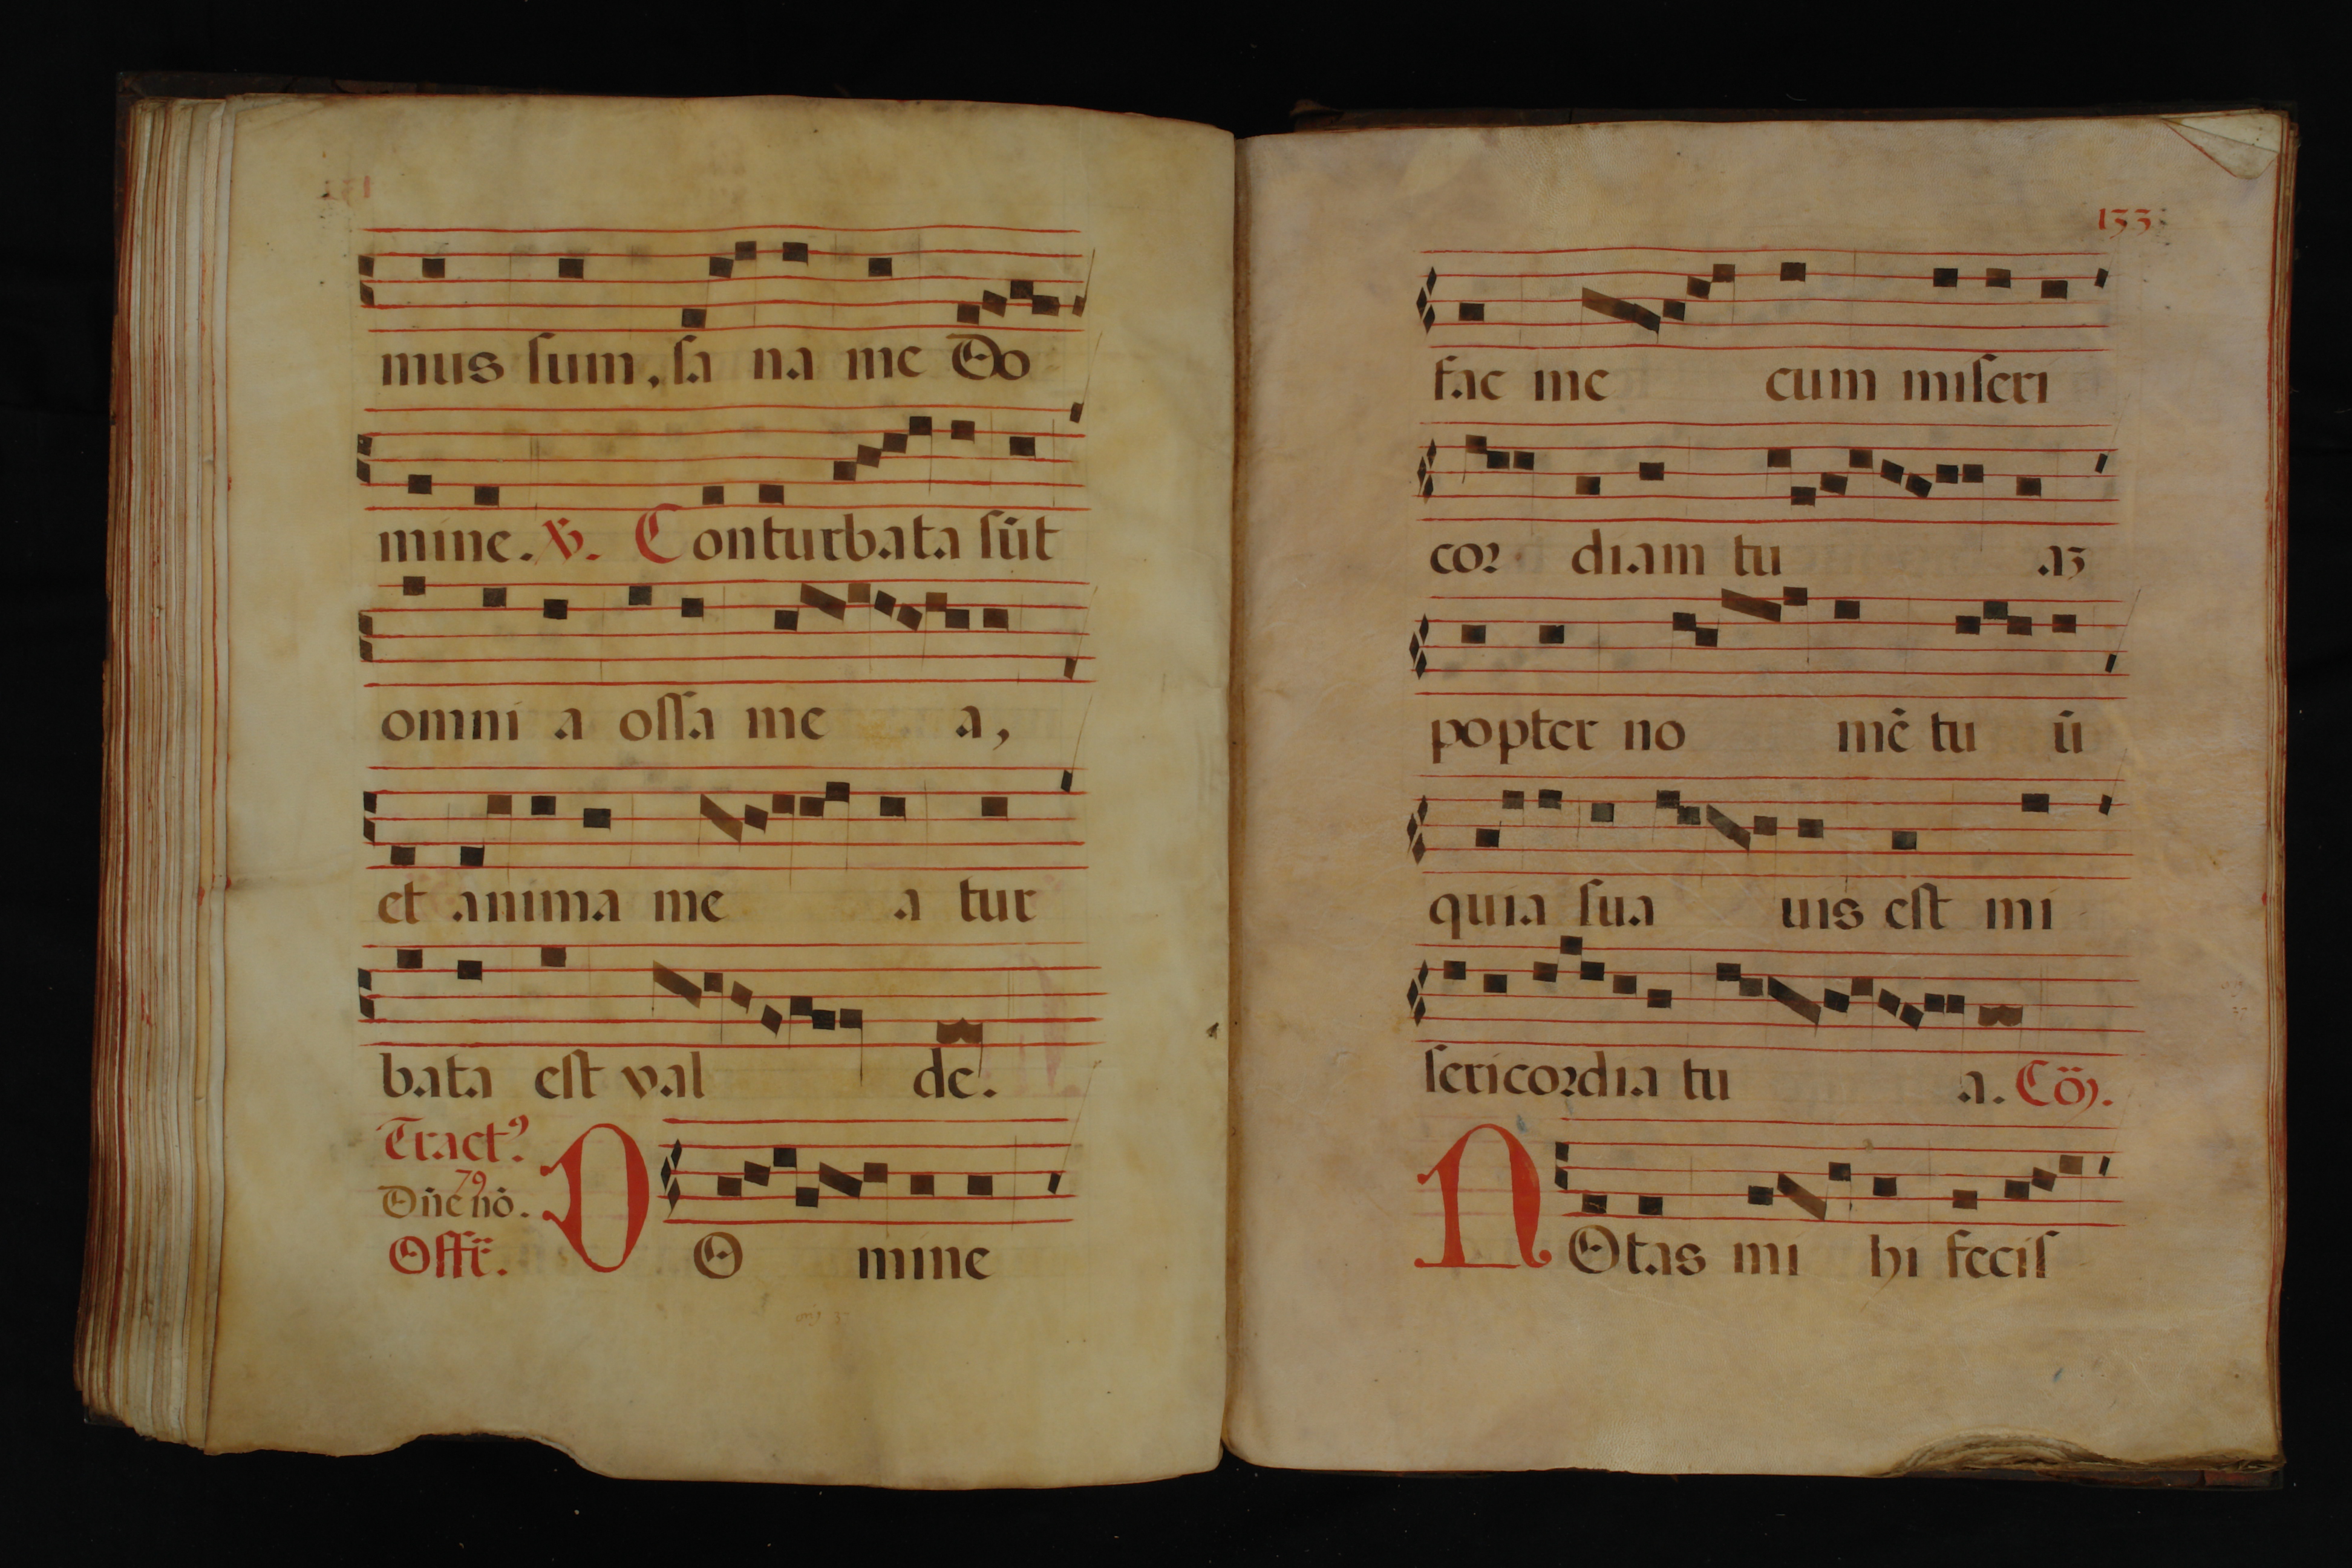 mus sum, sa na me Do
mine. ℣. Conturbata sūt
omni a ossa me a,
et anima me a tur
bata est val de.
Tract⁹
79
Dn̄e nō.
Offr̄.
DO mine
133
fac me cum miseri
cor diam tu aȝ
popter no mē tu ū
quia sua uis est mi
sericordia tu a. Cōȝ.
NOtas mi hi fecis